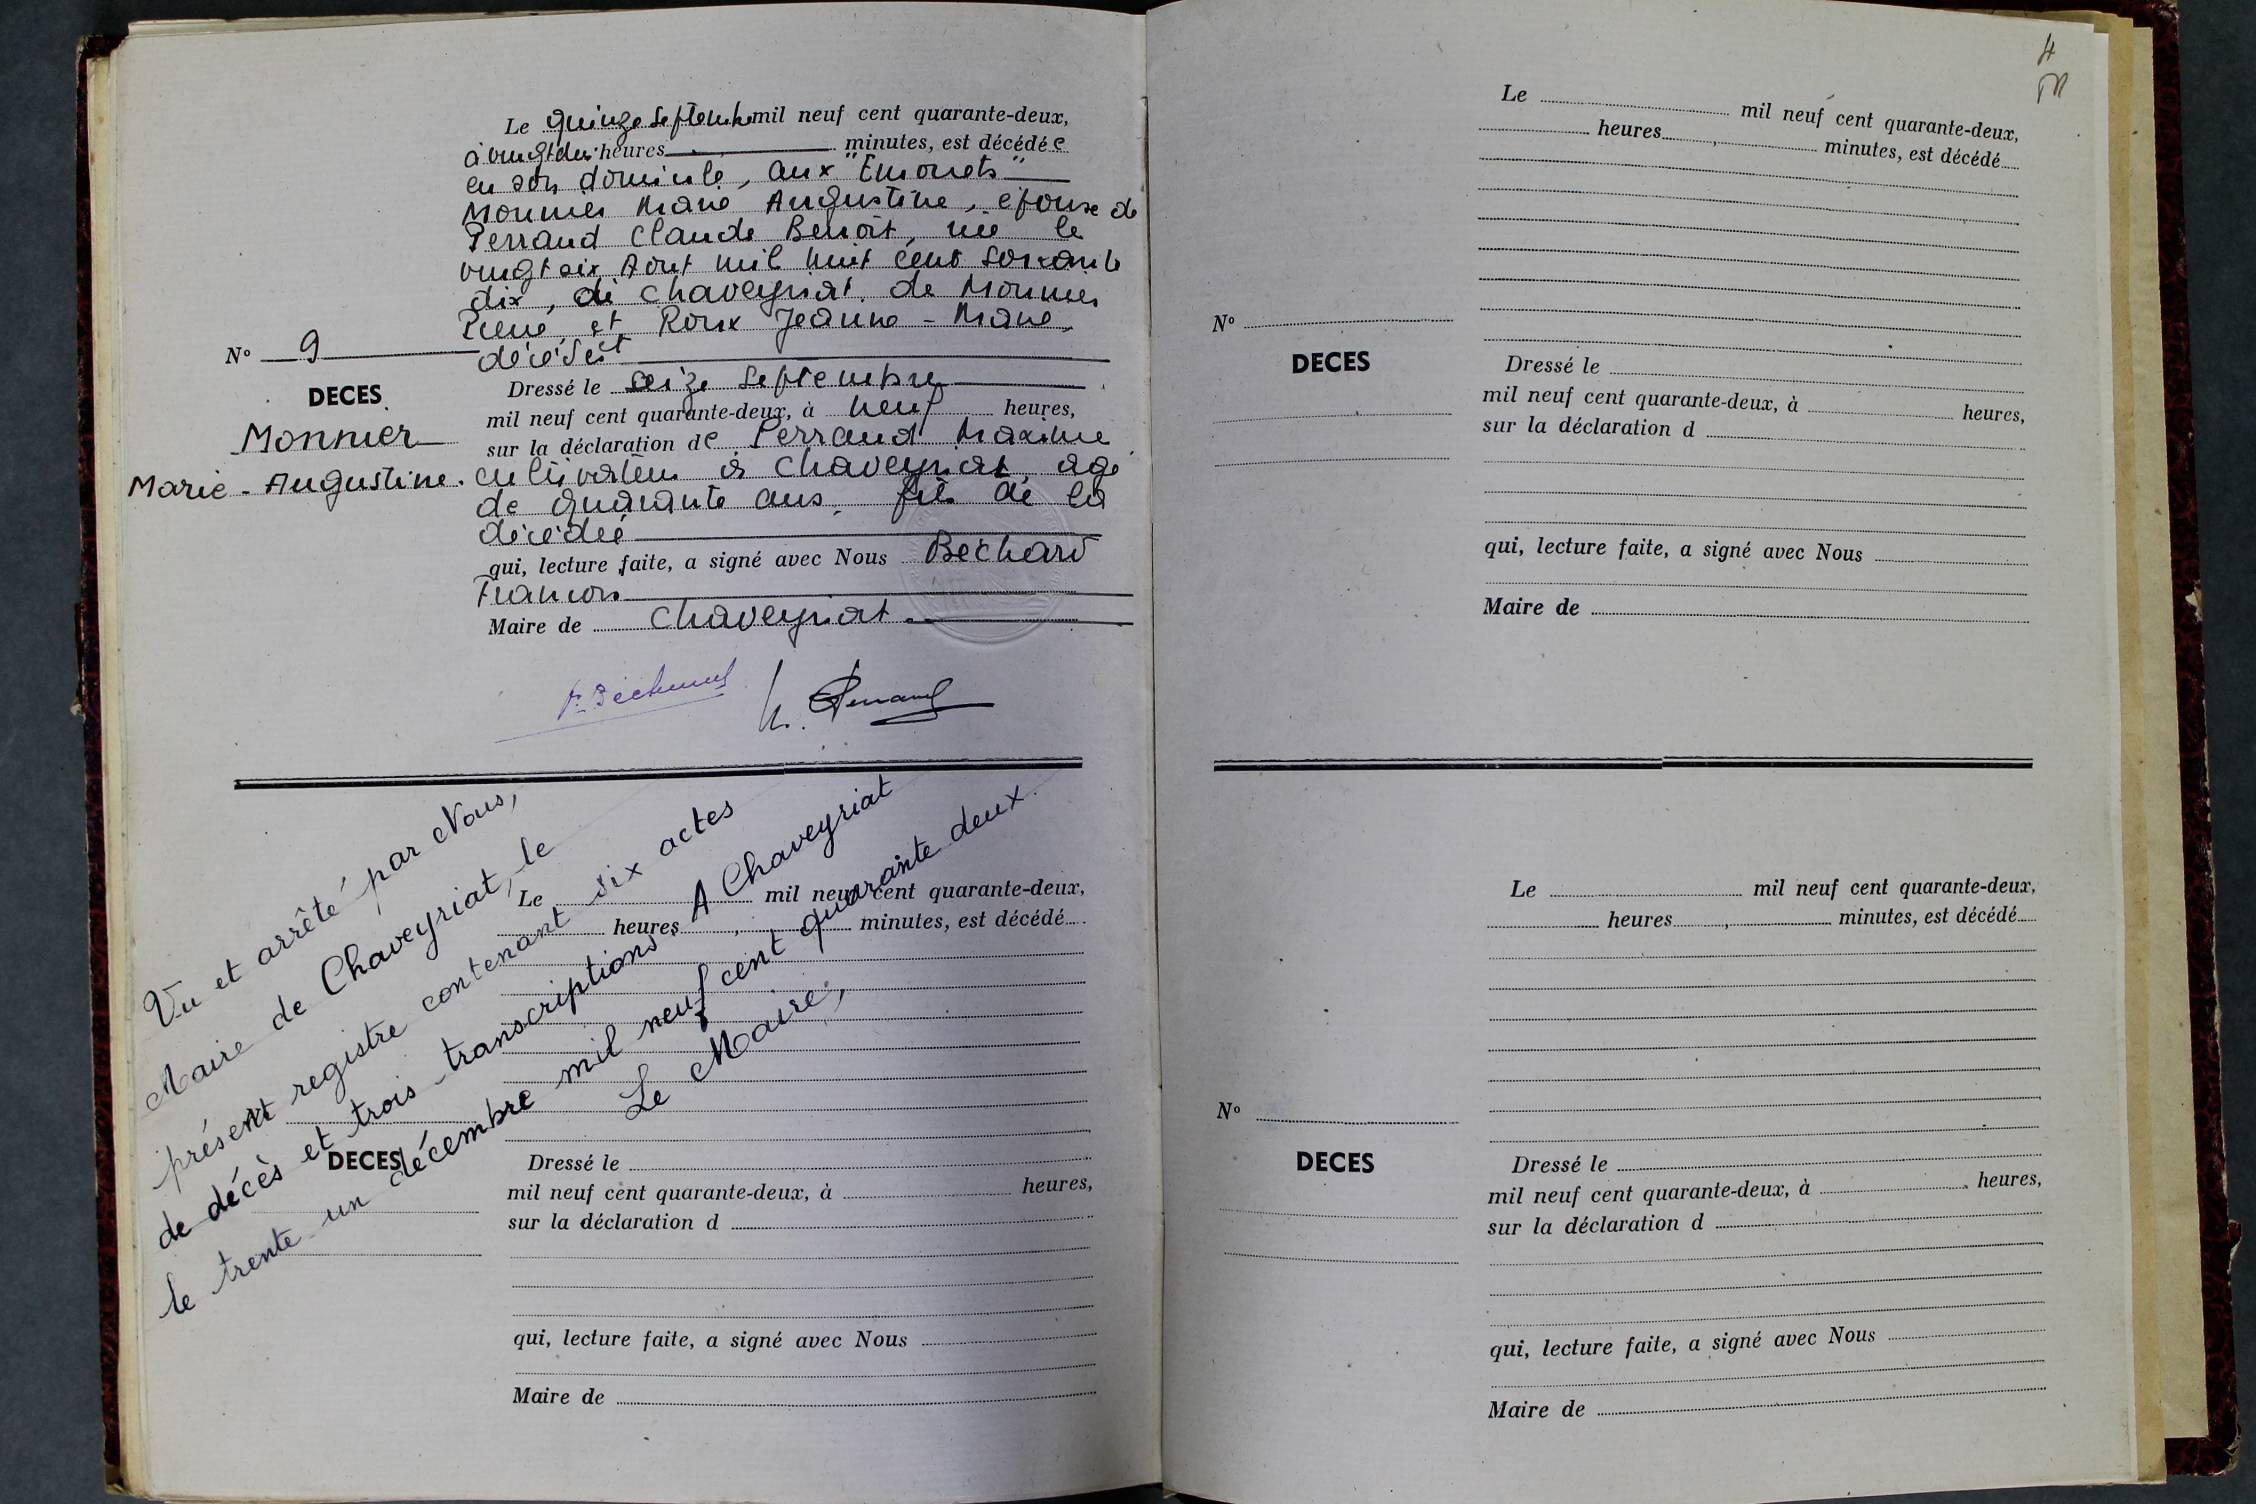 Le quinze Septembre mil neuf cent quarante-deux,
à vingt deux heures minutes, est décédée
en son domicile, aux "Emonets"
Monnier Marie Augustine, épouse de
Perraud Claude Benoit, née le
vingt six Aout mil huit cent soixante
dix, de Chaveyriat, de Monnier
Pierre et Roux Jeanne - Marie,
décédés
N° 9
DECES
Monnier
Marie - Augustine.
Dressé le seize Septembre
mil neuf cent quarante-deux, à neuf heures,
sur la déclaration de Perraud Maxime
cultivateur à Chaveyriat, agé
de quarante ans, fils de la
décédée
qui, lecture faite, a signé avec Nous Bechard
François
Maire de Chaveyriat
F. Béchard
M. Perraud
Vu et arrêté par Nous,
Maire de Chaveyriat, le
présent registre contenant six actes
de décès et trois transcriptions. A Chaveyriat
le trente un décembre mil neuf cent quarante deux.
Le Maire,
Le mil neuf cent quarante-deux,
heures, minutes, est décédé
DECES
Dressé le
mil neuf cent quarante-deux, à heures,
sur la déclaration d
qui, lecture faite, a signé avec Nous
Maire de
4
Le mil neuf cent quarante-deux,
heures, minutes, est décédé
N°
DECES
Dressé le
mil neuf cent quarante-deux, à heures,
sur la déclaration d
qui, lecture faite, a signé avec Nous
Maire de
Le mil neuf cent quarante-deux,
heures, minutes, est décédé
N°
DECES
Dressé le
mil neuf cent quarante-deux, à heures,
sur la déclaration d
qui, lecture faite, a signé avec Nous
Maire de